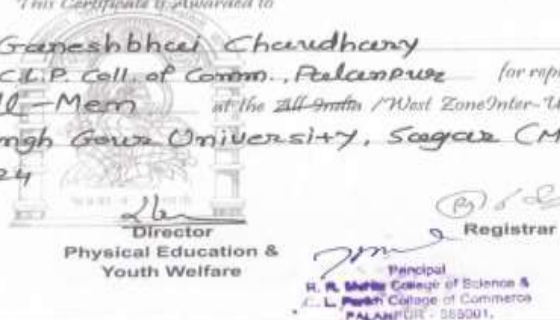 This Certificate is Awarded to
Ganeshbhai Chaudhary
C.L.P. Coll. of Comm., Palanpur for rep
ll-Men at the All India /West Zone Inter-U
ngh Gour University, Sagar (M
24
Director
Physical Education &
Youth Welfare
Registrar
Principal
R. R. Mehta College of Science &
C. L. Parikh College of Commerce
PALANPUR - 385001.